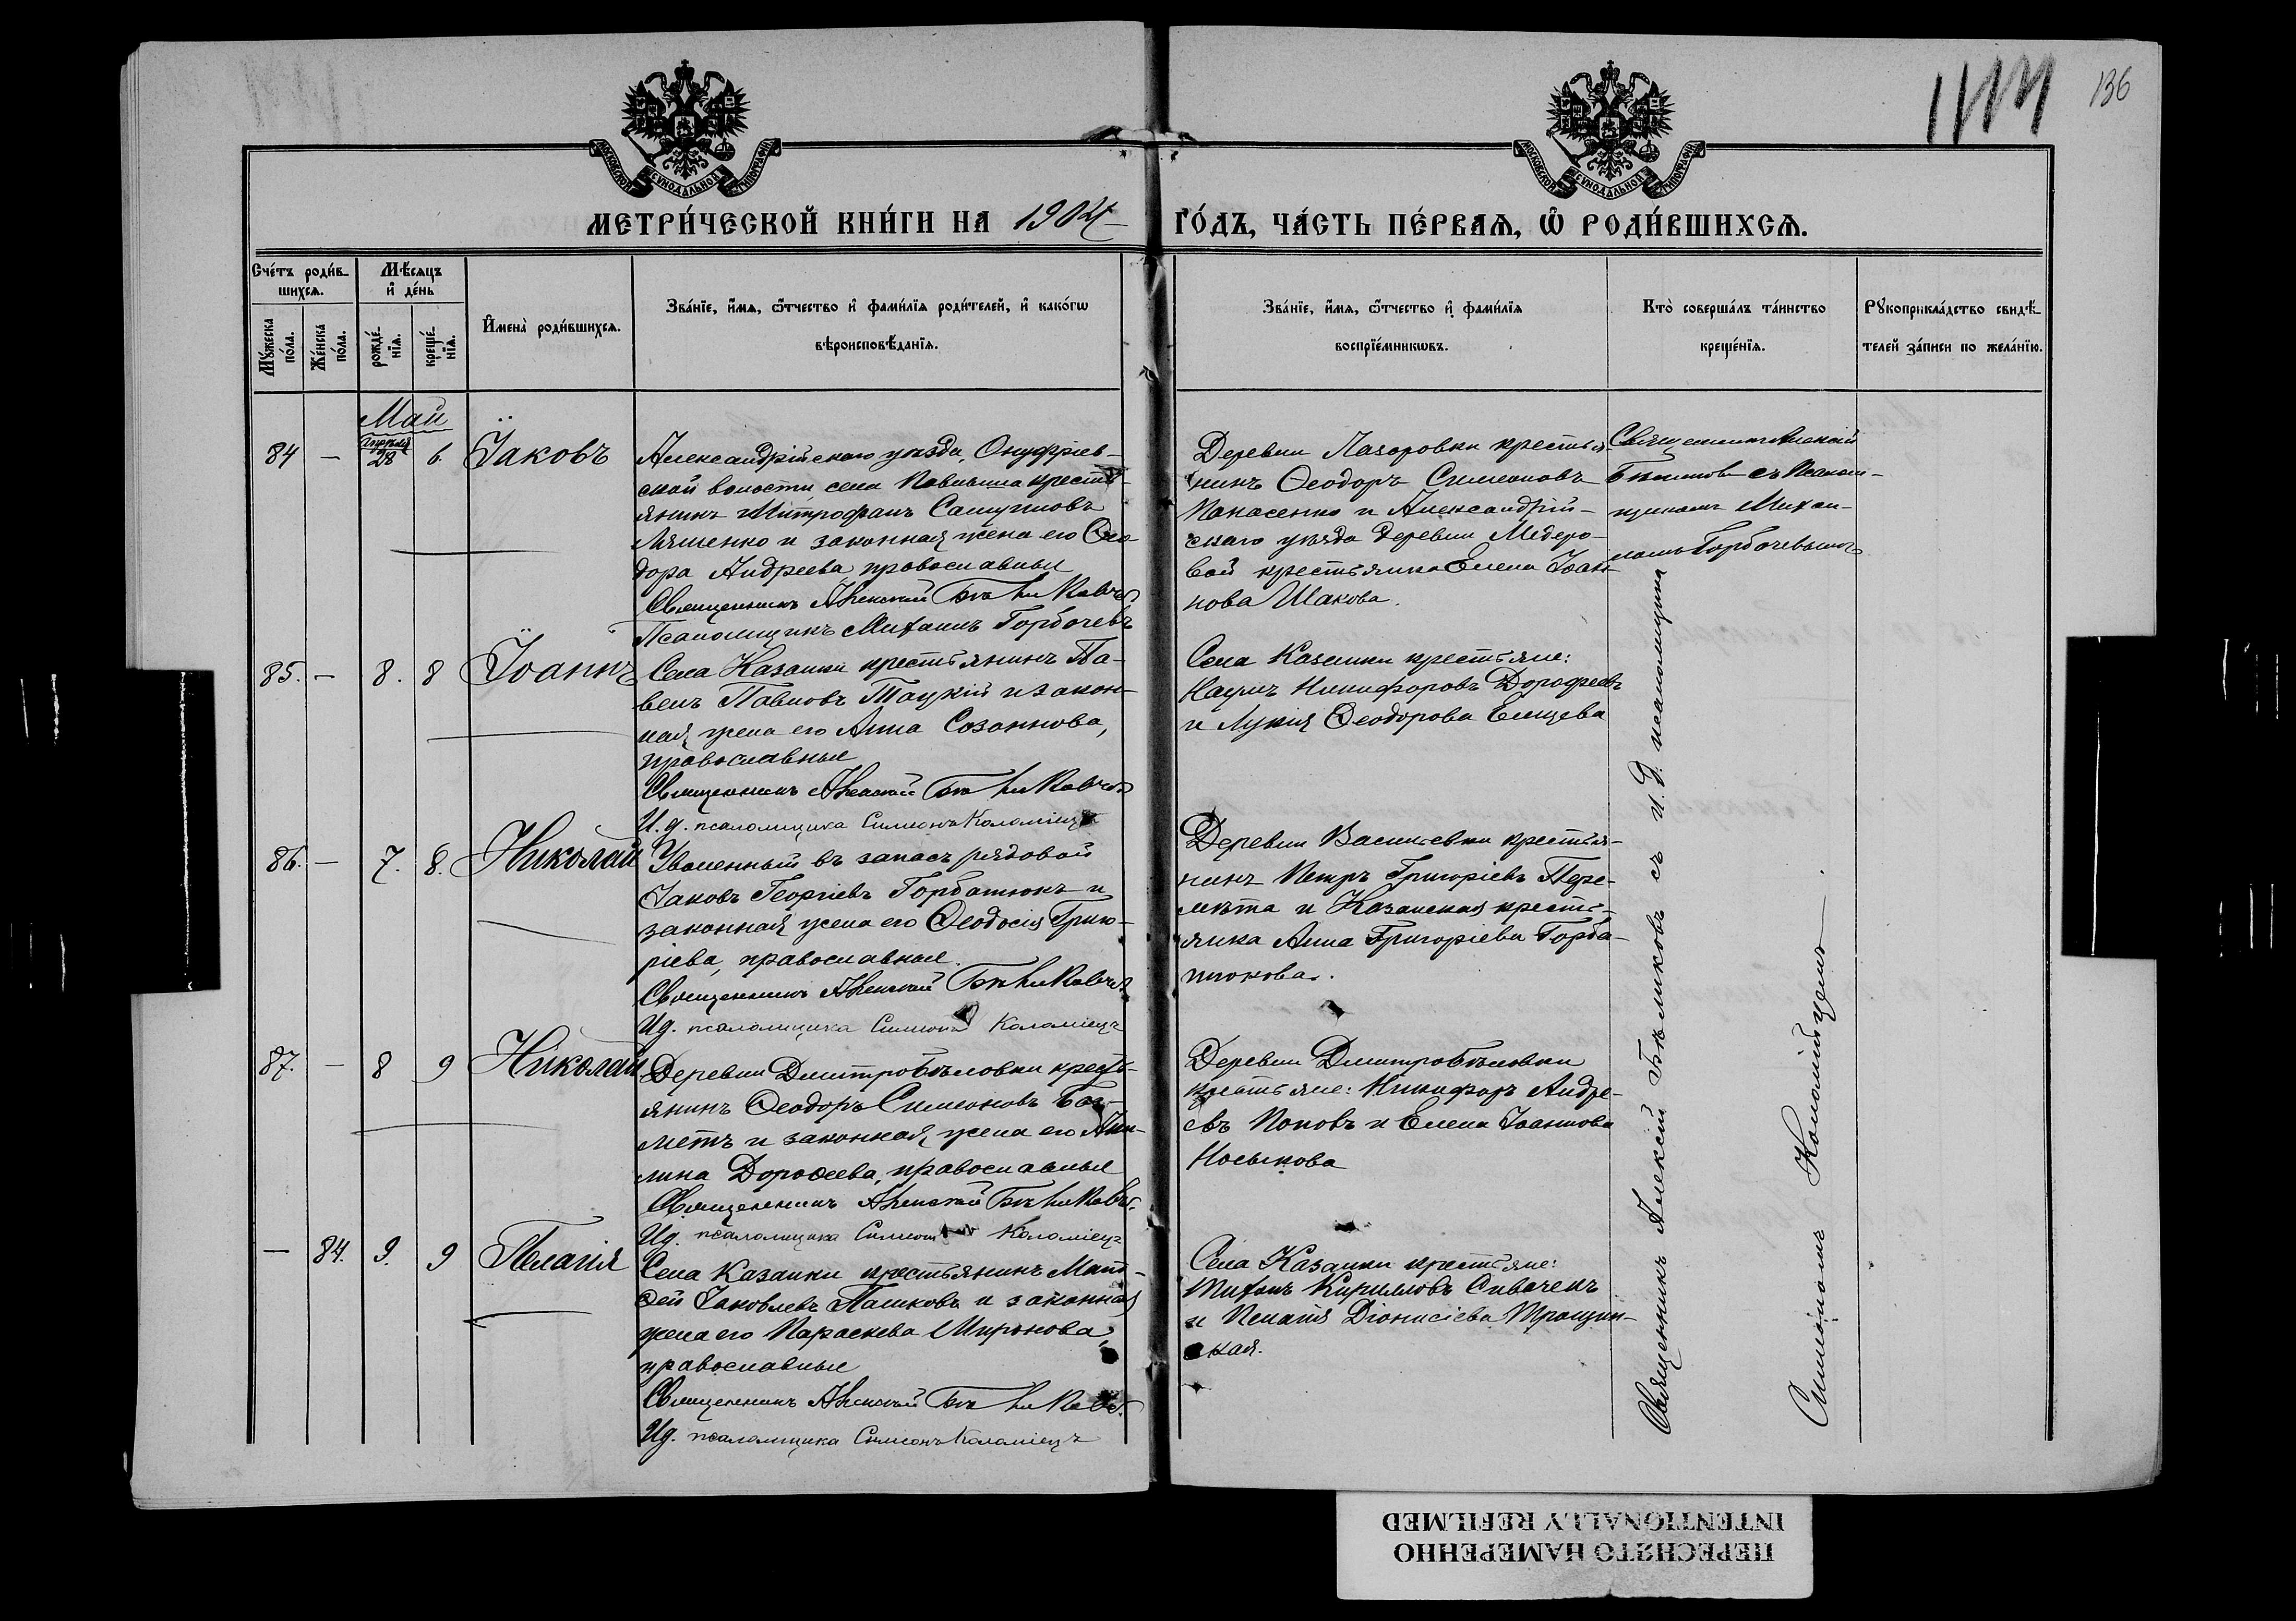 136
МОСКОВСКОЙ СѴНОДАЛЬНОЙ ТИПОГРАФІИ
МОСКОВСКОЙ СѴНОДАЛЬНОЙ ТИПОГРАФІИ
МЕТРИ́ЧЕСКОЙ КНИ́ГИ НА 1904 ГО́ДЪ, ЧА́СТЬ ПЕ́РВАѦ, Ѽ РОДИ́ВШИХСѦ.
Сче́тъ роди́в-
шихсѧ.
Мꙋ́жеска по́ла.
Же́нска по́ла.
Мѣ́сѧцъ
и҆ де́нь
рожде́-
нїѧ.
креще́-
нїѧ.
И҆мена̀ роди́вшихсѧ.
Зва́нїе, и҆́мѧ, ѻ҆́тчество и҆ фами́лїѧ роди́телей, и҆ како́гѡ
вѣроисповѣ́данїѧ.
Зва́нїе, и҆́мѧ, ѻ҆́тчество и҆ фами́лїѧ
воспрїе́мникѡвъ.
Кто̀ соверша́лъ та́инство
креще́нїѧ.
Рꙋкоприкла́дство свидѣ́-
телей за́писи по жела́нїю.
Май
84 — Апрѣля 28 6. Іаковъ
Александрійскаго уѣзда, Онуфріев-
ской волости, села Павлыша кресть-
янинъ Митрофанъ Самуиловъ
Ляшенко и законная жена его Ѳео-
дора Андреева, православные
Священникъ Алексій Бѣликовъ
Псаломщикъ Михаилъ Горбачевъ
Деревни Лазоровки крестья-
нинъ Ѳеодоръ Симеоновъ
Панасенко и Александрій-
скаго уѣзда деревни Медеро-
вой крестьянка Елена Іоан-
нова Шакова.
Священникъ Алексій
Бѣликовъ съ Псалом-
щикомъ Михаи-
ломъ Горбачевымъ
85. — 8. 8 Іоаннъ
Села Казанки крестьянинъ Па-
велъ Павловъ Тацкій и закон-
ная жена его Анна Созонтова,
православные
Священникъ Алексій Бѣликовъ
И. д. псаломщика Симеонъ Коломіецъ
Села Казанки крестьяне:
Наумъ Никифоровъ Дорофеевъ
и Лукія Ѳеодорова Елцева
86. — 7. 8. Николай
Уволенный въ запасъ рядовой
Іаковъ Георгіевъ Горбатюкъ и
законная жена его Ѳеодосія Григо-
ріева, православные.
Священникъ Алексій Бѣликовъ
И д. псаломщика Симеонъ Коломіецъ
Деревни Васильевки крестья-
нинъ Петръ Григоріевъ Пере-
мѣта и Казанская кресть-
янка Анна Григоріева Горба-
тюкова.
87. — 8 9 Николай
Деревни Дмитробѣловки кресть-
янинъ Ѳеодоръ Симеоновъ
и законная жена его Аки-
лина Дороѳеева, православные
Священникъ Алексій Бѣликовъ
И д. псаломщика Симеонъ Коломіецъ
Деревни Дмитробѣловки
крестьяне: Никифоръ Андре-
евъ Поповъ и Елена Іоаннова
Носыкова
— 84. 9. 9 Пелагія
Села Казанки крестьянинъ Мат-
ѳей Іаковлевъ Пашковъ и законная
жена его Параскева Миронова,
православные
Священникъ Алексій Бѣликовъ
И д. псаломщика Симеонъ Коломіецъ
Села Казанки крестьяне:
Тихонъ Кирилловъ Сиваченъ
и Пелагія Діонисіева Трощин-
ская.
Священникъ Алексій Бѣликовъ съ и. д. псаломщика
Симеономъ Коломійцемъ.
ПЕРЕСНЯТО НАМЕРЕННО
INTENTIONALLY REFILMED